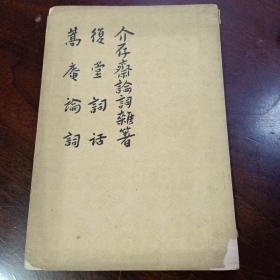 介存齋論詞雜著
復堂詞话
蒿庵論詞